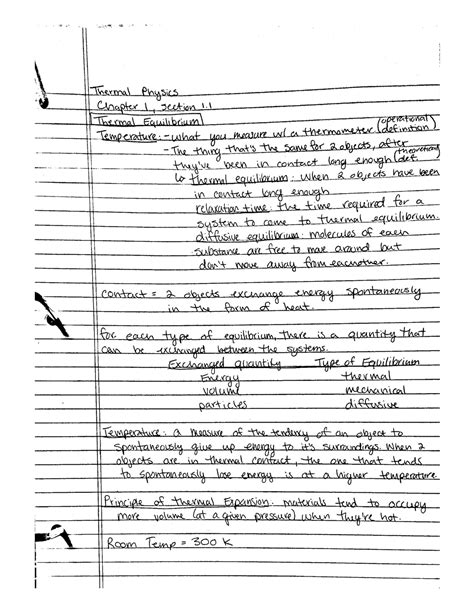 Thermal Physics
Chapter 1, section 1.1
Thermal Equilibrium
Temperature: - what you measure w/ a thermometer (operational definition)
- The thing that's the same for 2 objects, after
they've been in contact long enough (theoretical def.)
↳ thermal equilibrium: When 2 objects have been
in contact long enough
relaxation time: the time required for a
system to come to thermal equilibrium.
diffusive equilibrium: molecules of each
substance are free to move around but
don't move away from eachother.
Contact = 2 objects exchange energy spontaneously
in the form of heat.
for each type of equilibrium, there is a quantity that
can be exchanged between the systems.
Exchanged quantity Type of Equilibrium
Energy thermal
volume mechanical
particles diffusive
Temperature: a measure of the tendency of an object to
spontaneously give up energy to it's surroundings. When 2
objects are in thermal contact, the one that tends
to spontaneously lose energy is at a higher temperature.
Principle of thermal Expansion: materials tend to occupy
more volume (at a given pressure) when they're hot.
Room Temp = 300 K